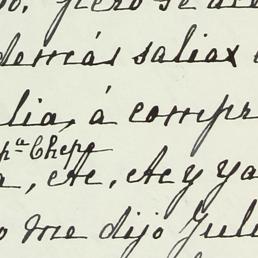 pero se
demás saliax
lia, á compr
pª Chepe
a, etc, etc y ya
o me dijo Jul